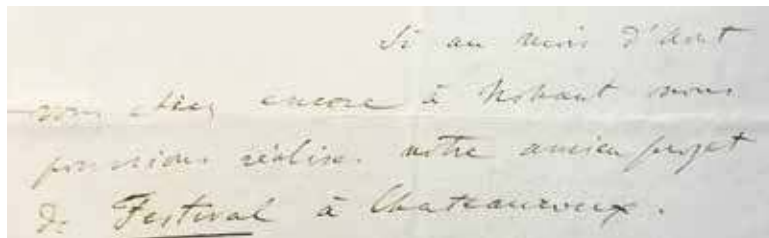 Si au mois d'Aout
vous étiez encore à Nohant nous
pourrions réaliser notre ancien projet
de Festival à Chateauroux.